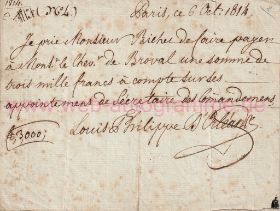 1814.
(No. 4.) Paris, ce 6 Oct. 1814
Je prie Monsieur Bichet de faire payer
à Monsr. le Chevr. de Broval une somme de
trois mille francs à compte sur ses
appointemens de Sécrétaire des Comandemens
f. 3000,
Louis Philippe D'Orléans